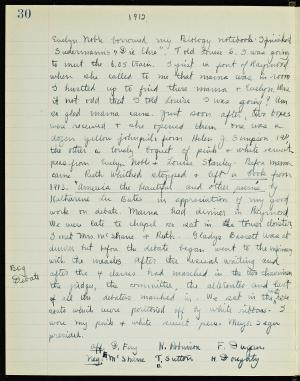 30
1912
Evelyn Noble borrowed my Biology notebook. I finished
Sudermann's "Die Ehre". Told Louise S. I was going
to meet the 6.05 train. I first in front of Raymond
when she called to me that mama was in room
I hustled up to find there mama + Evelyn. Wasn't
it not odd that I told Louise I was going? Am
so glad mama came. Just soon after, two boxes
was received + she opened them. One was a
dozen yellow jonquils from Helen J. Simpson 1914,
the other a lovely boquet of pink + white sweet
peas from Evelyn Noble + Louise Stanley. Before mama
came Ruth Whitehed stopped + left a book from
1913. "America the beautiful and other poems" by
Katharine Lee Bates in appreciation of my good
work on debate. Mama had dinner in Raymond
We were late to chapel so sat in the trout doubts
I met Mrs. McShane + Ruth. Gladys Bassett was at
dinner but before the debate began went to the infirmary
with the measles. After the usual waiting and
after the 4 classes had marched in the two chairmen
the judges, the committee, the alternates and last
of all the debaters marched in. We sat in the
seats which were portioned off by white ribbons. I
wore my pink + white sweet peas. Hugh Isgen
presided.
Bog
Debate
aff. D. Fay N. Robinson F. Dugan
neg. R. McShane T. Sutton H. Doughty